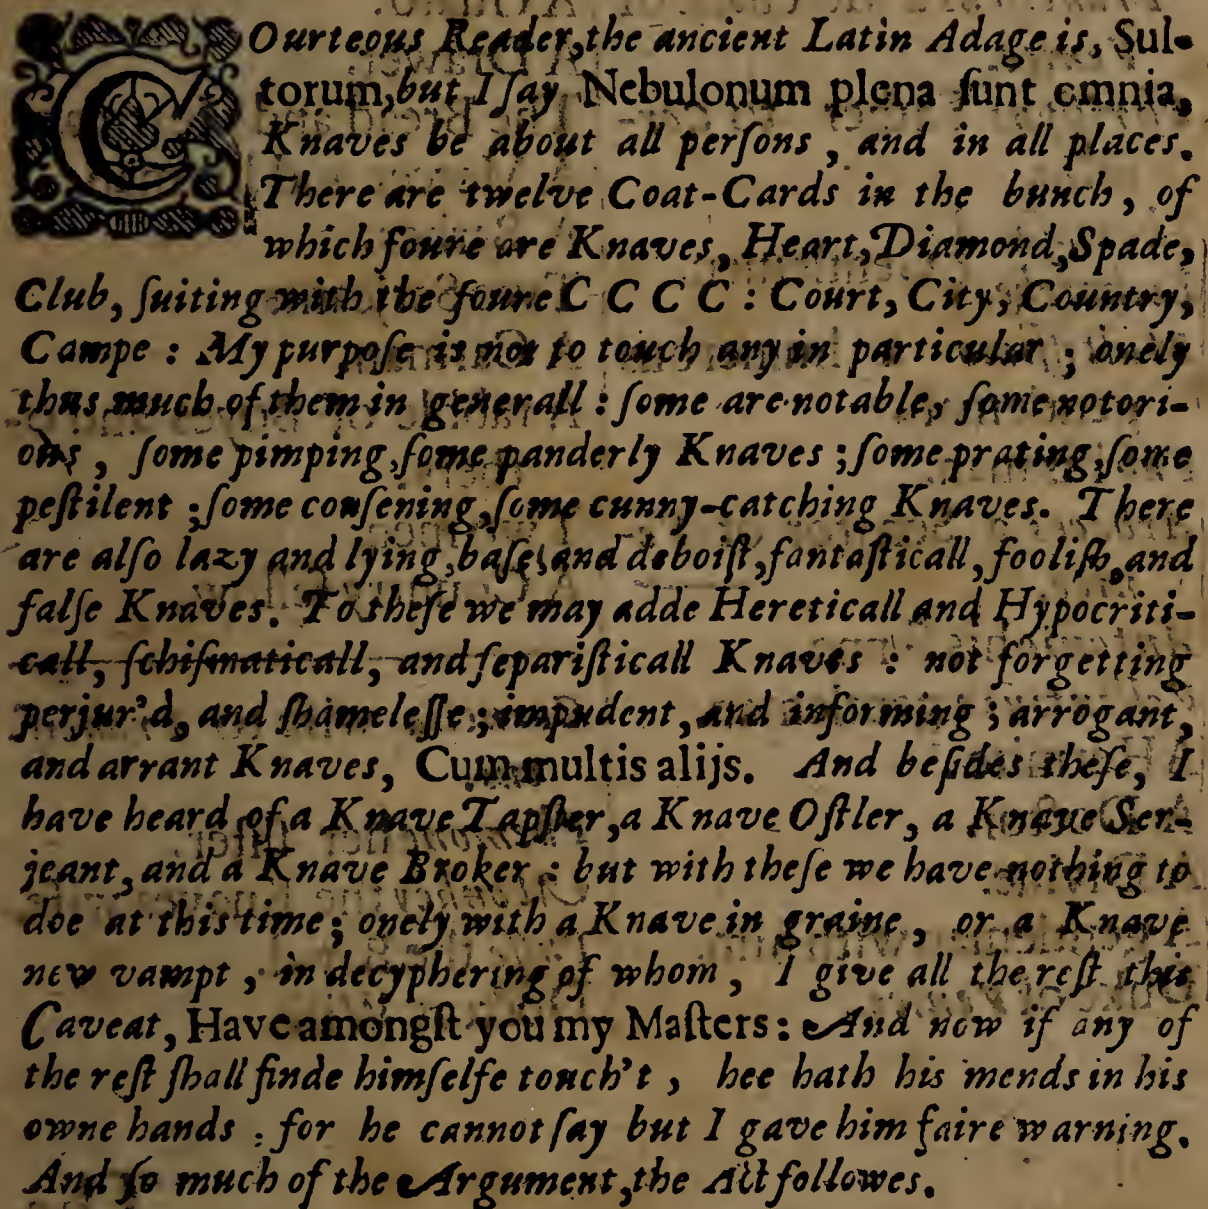 COurteous Reader, the ancient Latin Adage is, Sul-
torum, but I ſay Nebulonum plena ſunt omnia,
Knaves be about all perſons, and in all places.
There are twelve Coat-Cards in the bunch, of
which foure are Knaves, Heart, Diamond, Spade,
Club, ſuiting with the foure C C C C : Court, City, Country,
Campe : My purpoſe is not to touch any in particular ; onely
thus much of them in generall : ſome are notable, ſome notori-
ous, ſome pimping, ſome panderly Knaves ; ſome prating, ſome
peſtilent ; ſome couſening, ſome cunny-catching Knaves. There
are alſo lazy and lying, baſe, and deboiſt, fantaſticall, fooliſh, and
falſe Knaves. To theſe we may adde Hereticall and Hypocriti-
call, ſchiſmaticall, and ſepariſticall Knaves : not forgetting
perjur'd, and ſhameleſſe ; impudent, and informing ; arrogant,
and arrant Knaves, Cum multis alijs. And beſides theſe, I
have heard of a Knave Tapſter, a Knave Oſtler, a Knave Ser-
jeant, and a Knave Broker : but with theſe we have nothing to
doe at this time ; onely with a Knave in graine, or a Knave
new vampt, in decyphering of whom, I give all the reſt this
Caveat, Have amongſt you my Maſters : And now if any of
the reſt ſhall finde himſelfe touch't, hee hath his mends in his
owne hands : for he cannot ſay but I gave him faire warning.
And ſo much of the Argument, the Act followes.